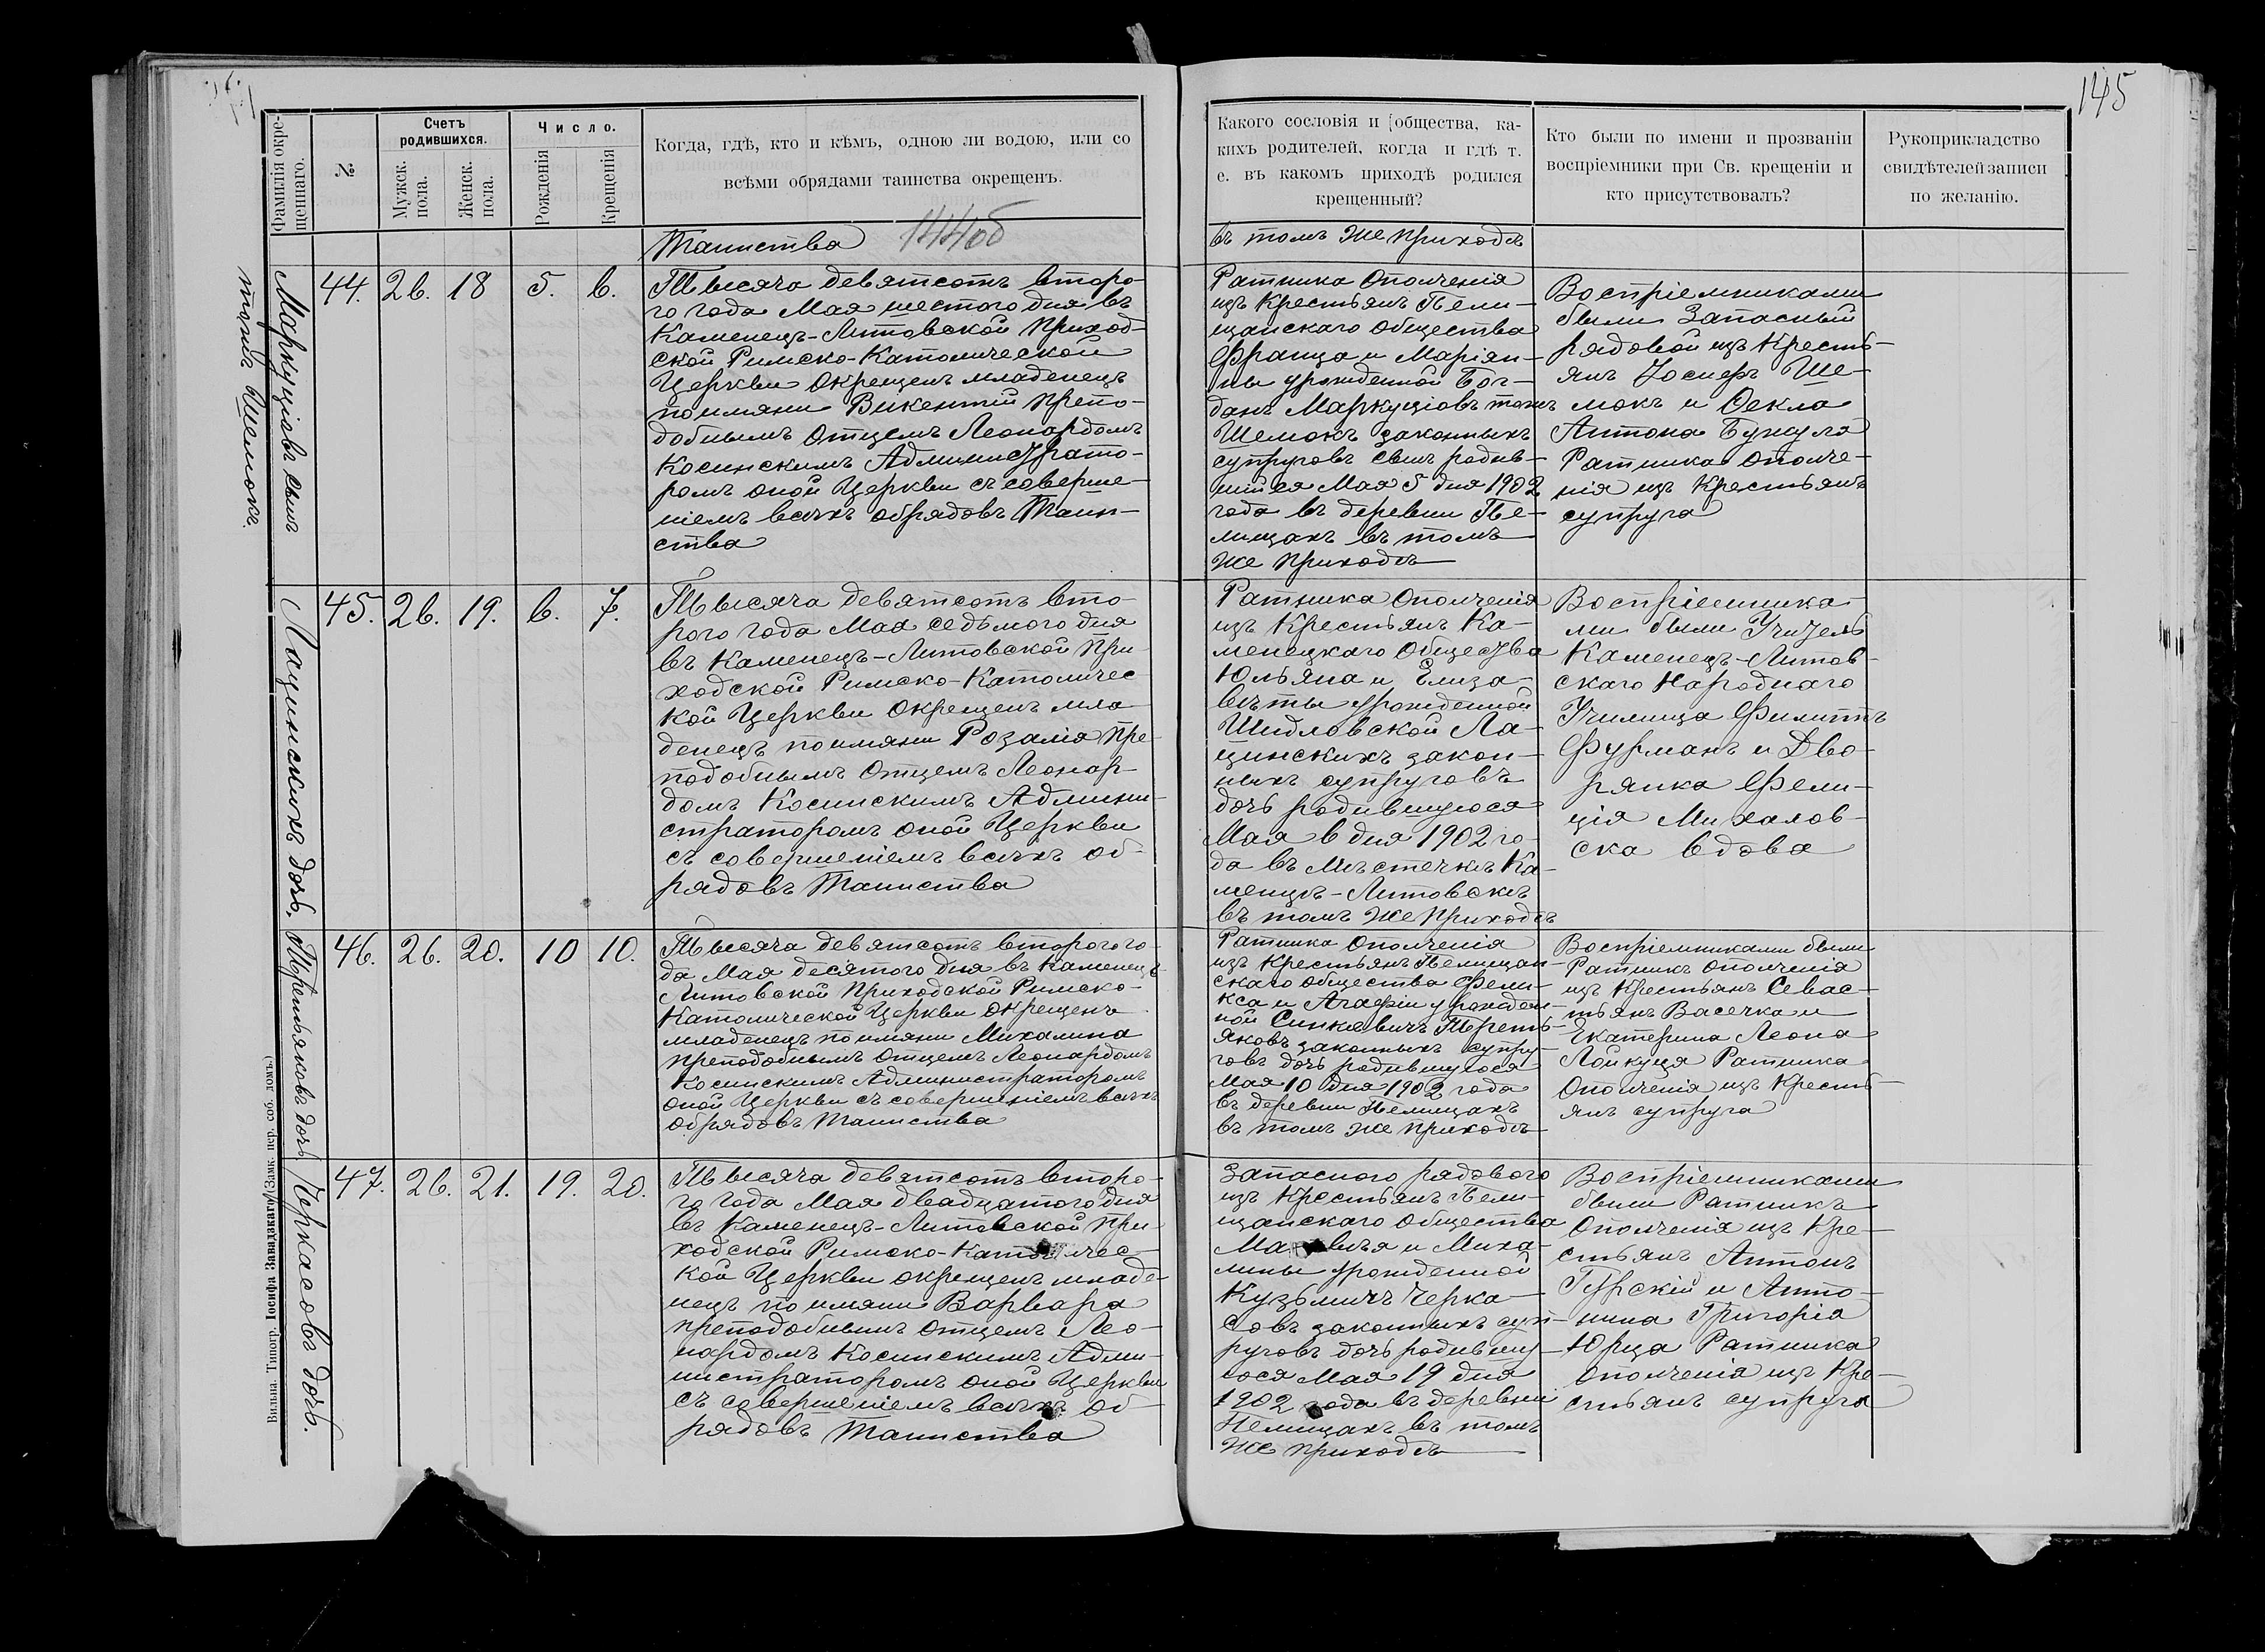 145
Фамилія окре-
щеннаго.
№
Счетъ
родившихся.
Мужск.
пола.
Женск.
пола.
Число.
Рожденія
Крещенія
Когда, гдѣ, кто и кѣмъ, одною ли водою, или со
всѣми обрядами таинства окрещенъ.
Какого сословія и общества, ка-
кихъ родителей, когда и гдѣ т.
е. въ какомъ приходѣ родился
крещенный?
Кто были по имени и прозваніи
воспріемники при Св. крещеніи и
кто присутствовалъ?
Рукоприкладство
свидѣтелей записи
по желанію.
Таинства 144об
въ томъ же приходѣ
Маркуціовъ сынъ
тожъ Шемокъ.
44. 26. 18 5. 6.
Тысяча девятсотъ второ-
го года Мая шестого дня въ
Каменецъ-Литовской приход-
ской Римско-Католической
Церкви окрещенъ младенецъ
по имяни Викентій препо-
добнымъ Отцемъ Леонардомъ
Косинскимъ Администрато-
ромъ оной Церкви съ соверше-
ніемъ всѣхъ обрядовъ Таин-
ства
Ратника ополченія
изъ крестьянъ Пели-
щанскаго общества
Франца и Маріян-
ны урожденной Бог-
данъ Маркуціовъ тожъ
Шемокъ законныхъ
супруговъ сынъ родив-
шійся Мая 5 дня 1902
года въ деревни Пе-
лищахъ въ томъ
же приходѣ
Воспріемниками
были Запасный
рядовой изъ кресть-
янъ Іосифъ Ше-
мокъ и Текла
Антона Букуля
Ратника ополче-
нія изъ крестьянъ
супруга
Лацинскихъ дочь.
45. 26. 19. 6. 7.
Тысяча девятсотъ вто-
рого года Мая седьмого дня
въ Каменецъ-Литовской При-
ходской Римско-Католичес
кой Церкви окрещенъ мла
денецъ по имяни Розалія пре-
подобнымъ Отцемъ Леонар-
домъ Косинскимъ Админи-
страторомъ оной Церкви
съ совершеніемъ всѣхъ об-
рядовъ Таинства
Ратника ополченія
изъ крестьянъ Ка-
менецкаго общества
Юльяна и Елиза-
веты урожденной
Шидловской Ла-
цинскихъ закон-
ныхъ супруговъ
дочь родившуюся
Мая 6 дня 1902 го-
да въ мѣстечкѣ Ка-
менцѣ-Литовскѣ
въ томъ же приходѣ
Воспріемника-
ми были Учитель
Каменецъ-Литов-
скаго Народнаго
Училища Филиппъ
Фурманъ и Дво-
рянка Фели-
ція Михалов-
ска вдова
Третьяковъ дочь.
46. 26. 20. 10 10.
Тысяча девятсотъ второго го-
да Мая десятого дня въ Каменецъ-
Литовской Приходской Римско-
Католической Церкви окрещенъ
младенецъ по имяни Михалина
преподобнымъ Отцемъ Леонардомъ
Косинскимъ Администраторомъ
оной Церкви съ совершеніемъ всѣхъ
обрядовъ Таинства
Ратника ополченія
изъ крестьянъ Пелищан-
скаго общества Фели-
кса и Агафіи урожден-
ной Синкевичъ Треть-
яковъ законныхъ супру-
говъ дочь родившуюся
Мая 10 дня 1902 года
въ деревни Пелищахъ
въ томъ же приходѣ
Воспріемниками были
Ратникъ ополченія
изъ крестьянъ Севас-
тьянъ Васечка и
Екатерина Леона
Лойкуця Ратника
ополченія изъ кресть-
янъ супруга
Черкасовъ дочь.
47. 26. 21. 19. 20.
Тысяча девятсотъ второ-
го года Мая двадцатого дня
въ Каменецъ-Литовской при-
ходской Римско-Католичес-
кой Церкви окрещенъ младе-
нецъ по имяни Варвара
преподобнымъ Отцемъ Лео-
нардомъ Косинскимъ Адми-
нистраторомъ оной Церкви
съ совершеніемъ всѣхъ об-
рядовъ Таинства
Запасного рядового
изъ крестьянъ Пели-
щанскаго общества
и Миха-
лины урожденной
Кузьмичъ Черка-
совъ законныхъ суп-
руговъ дочь родившу-
юся Мая 19 дня
1902 года въ деревни
Пелищахъ въ томъ
же приходѣ
Воспріемниками
были Ратникъ
ополченія изъ кре-
стьянъ Антонъ
Гурскій и Анто-
нина Григорія
Юрца Ратника
ополченія изъ кре-
стьянъ супруга
Вильна. Типогр. Іосифа Завадзкаго (Замк. пер. соб. домъ.)